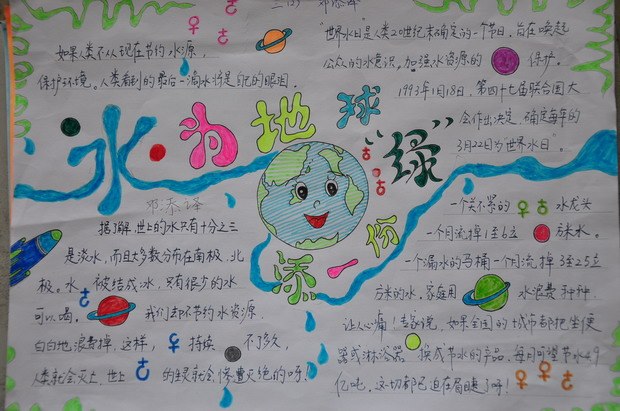 二(2) 邓添译
如果人类不从现在节约水源,
保护环境。人类看到的最后一滴水将是自己的眼泪。
"世界水日"是人类20世纪末确定的一个节日,旨在唤起
公众的水意识,加强水资源的保护。
1993年1月18日,第四十七届联合国大
会作出决定,确定每年的
3月22日为"世界水日"。
水为地球
添一份"绿"
邓添译
据了解,世上的水只有十分之三
是淡水,而且大多数分布在南极、北
极。水被结成冰,只有很少的水
可以喝。我们却不节约水资源,
白白地浪费掉,这样,持续不了多久,
人类就会灭亡,世上的生灵就会惨遭灭绝的呀!
一个关不紧的水龙头
一个月流掉1至6立方米水。
一个漏水的马桶一个月流掉3至25立
方米的水,家庭用水浪费种种,
让人心痛!专家说,如果全国的城市都把坐便
器或淋浴器换成节水的产品,每月可望节水4.9
亿吨。这一切都已迫在眉睫了呀!